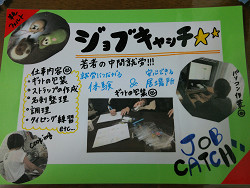 ジョブキャッチ☆☆
若者の中間就労!!!
就労につながる体験
&
安心できる居場所
仕事内容
・ギフトの包装
・ストラップの作成
・名刺整理
・調理
・タイピング練習
etc…
ギフトの包装
Cooking
JOB
CATCH!!